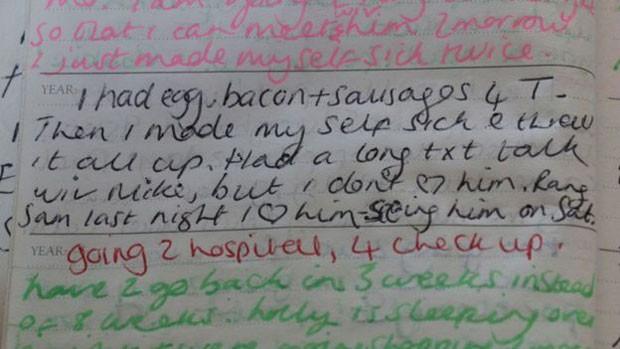 so that i can meet him 2morrow
I just made myself sick twice.
YEAR:
I had egg, bacon + sausages 4 T.
Then I made my self sick & threw
it all up. Had a long txt talk
wiv Mike, but i don't ♡ him. Rang
Sam last night I ♡ him - seeing him on Sat.
YEAR:
going 2 hospital, 4 check up.
have 2 go back in 3 weeks instead
of 8 weeks. holly is sleeping over